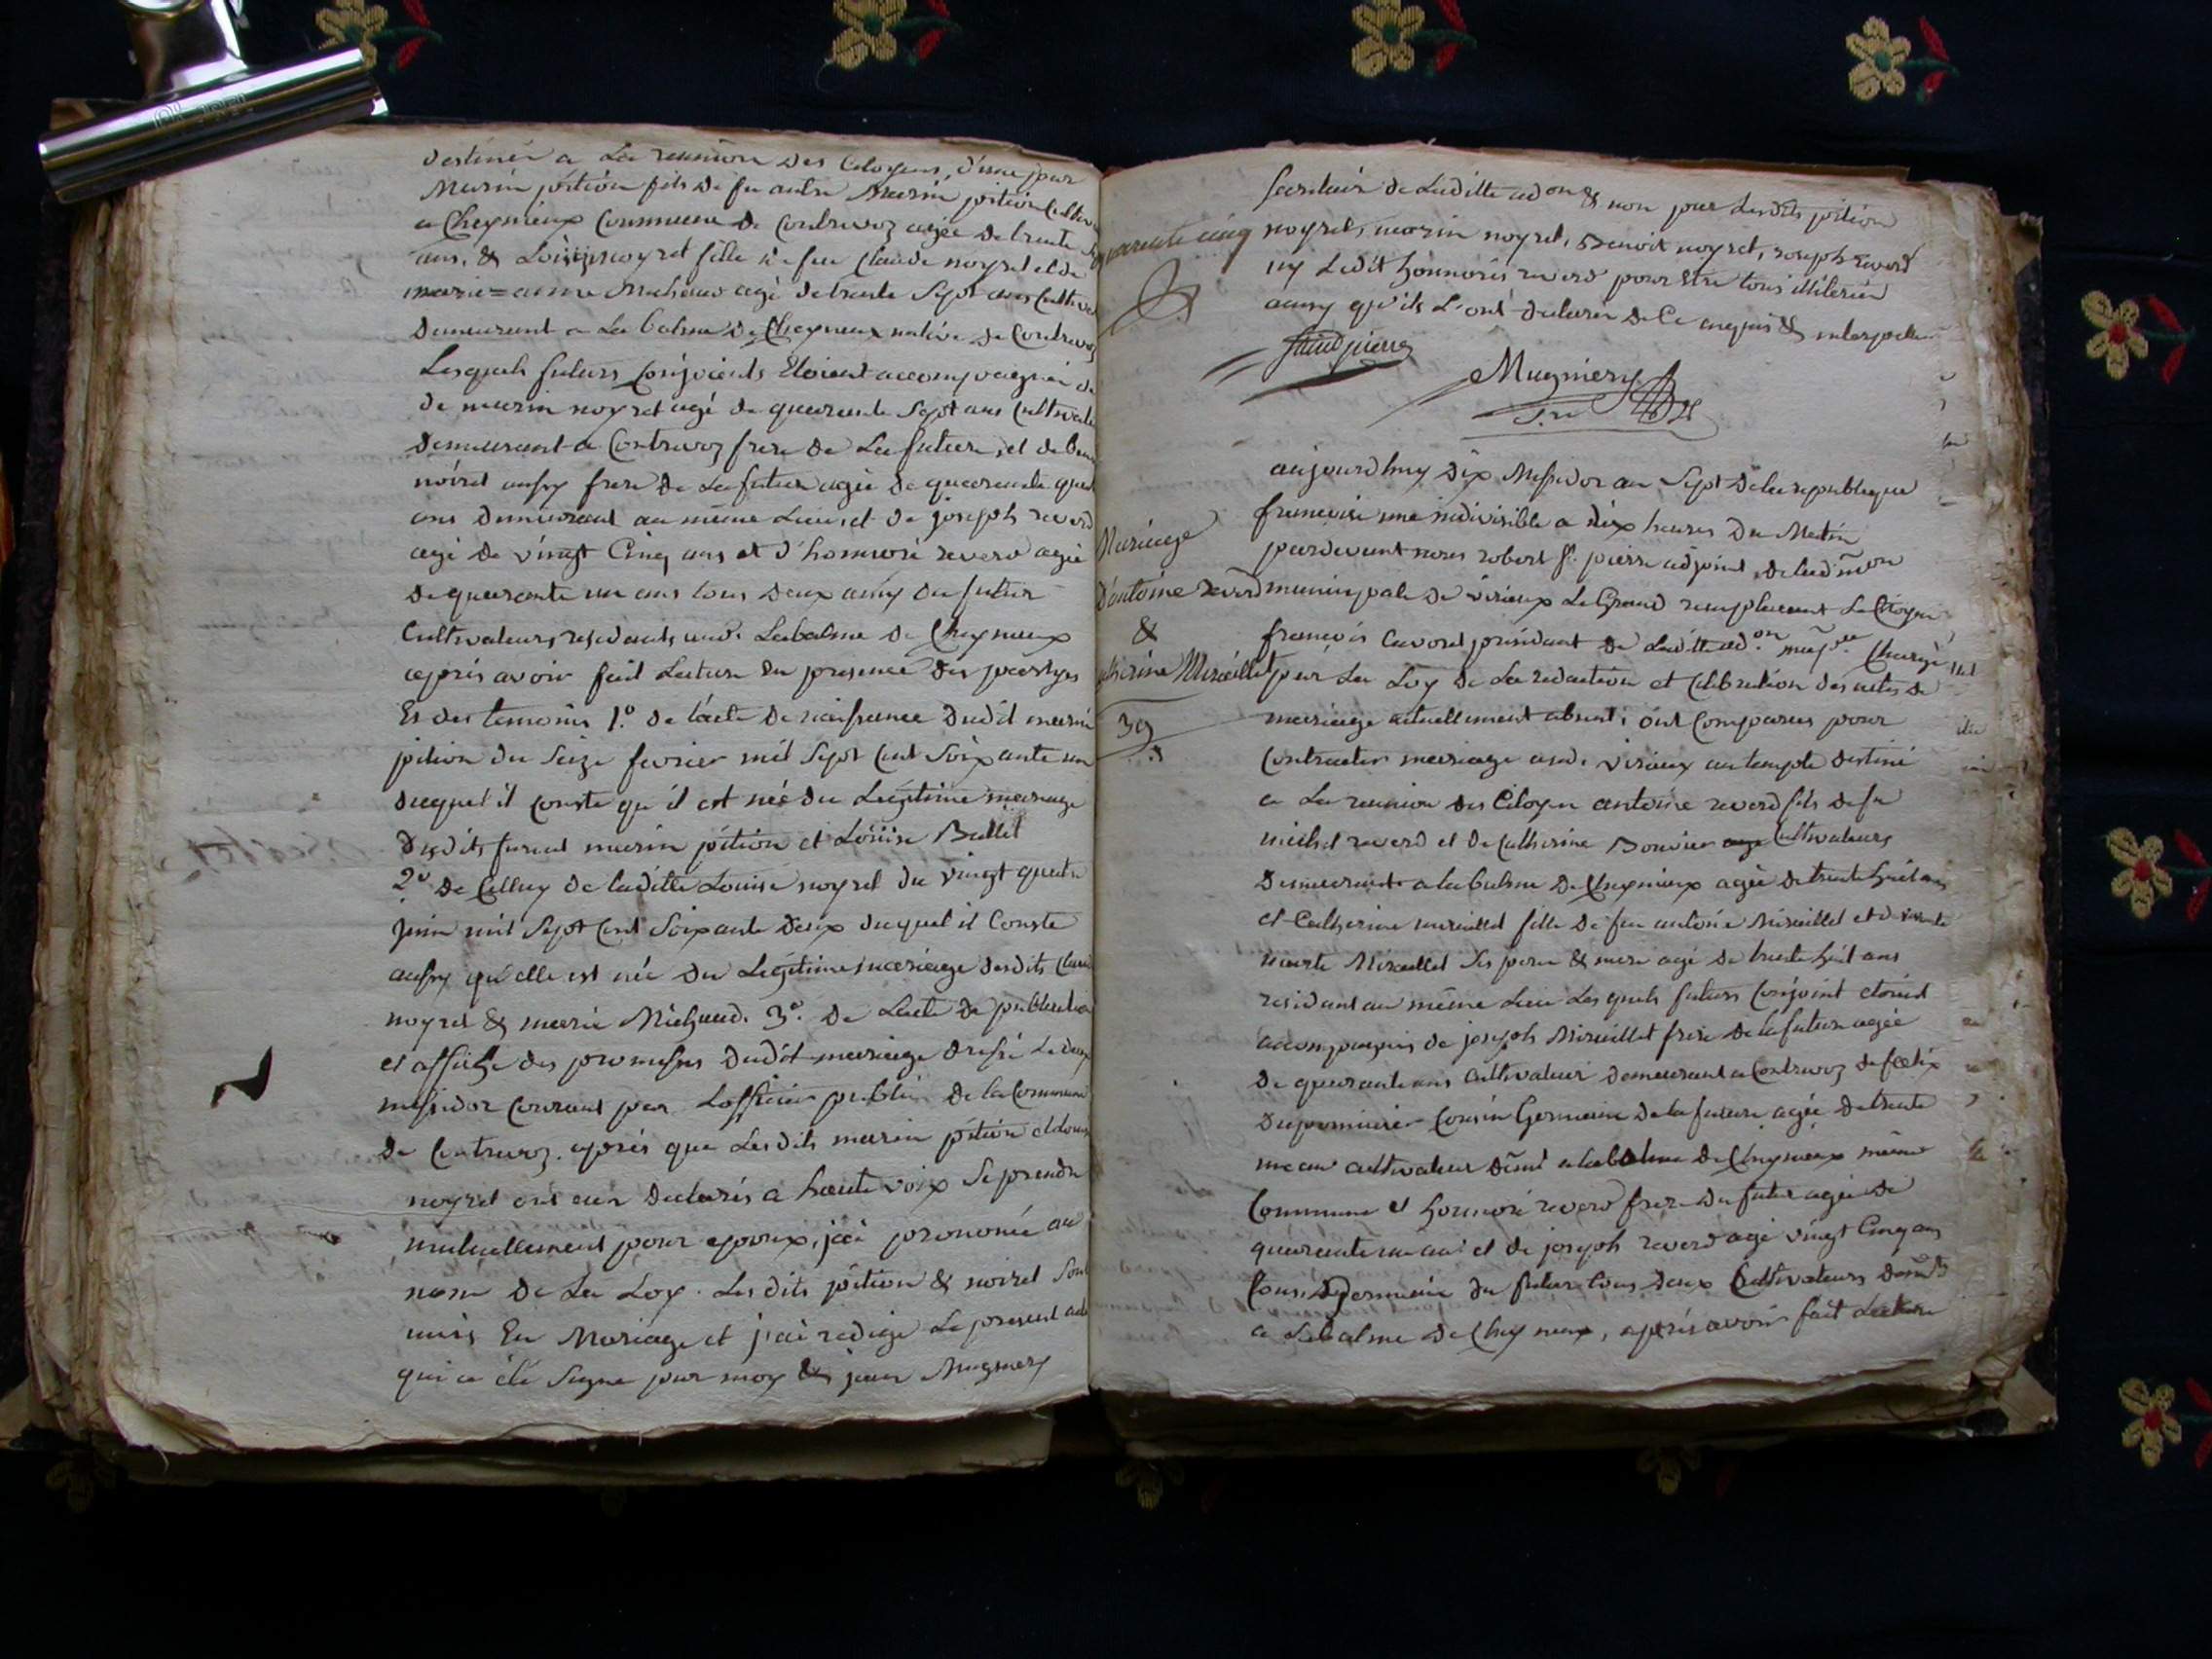 destinée a La reunion des Citoyens, d'une part
Marin pition fils de feu autre Marin pition
a Cheynieux Commune de Contrevoz agée de trente
ans, & Loüise noyret fille de feu Claude noyret et de
marie=anne Michaud agé de trente Sept ans
demeurant a La balme de Cheynieux native de Contrevoz
Lesquels futurs Conjoients Etoient accompagnié de
de marin noyret agé de quarante Sept ans
demeurant a Contrevoz frere de La future, et de
noiret aussy frere de La future agée de quarante
ans demeurant au même Lieu, et de joseph reverd
agé de vingt Cinq ans et d'honnoré reverd agée
de quarante un ans tous deux amy du futur
Cultivateurs, residants aud. Labalme de Cheynieux
après avoir fait Lecture En presence des partyes
Et des temoins 1.º de l'acte de naissance dudit marin
pition du Seize fevrier mil Sept Cent Soixante un
duquel il Conste qu'il est née du Legitime mariage
desdits furent marin pition et Loüise Ballet
2º de Celluy de laditte Louise noyret du vingt quatre
Juin mil Sept Cent Soixante deux duquel il Conste
aussy qu'elle est née du Legitime mariage desdits
noyret & marie Michaud. 3º. de L'acte de publication
et affiche des promesses dudit mariage dressé Le
messidor Courant par L'officier public de la Commune
de Contrevoz. après que Lesdits marin pition et Louise
noyret ont eux declarés a haute voix Se prendre
mutuellement pour epoux, j'ai prononcé au
nom de La Loy. Lesdits pition & noiret Sont
unis En Mariage et j'ai redigé Le present acte
qui a été Signe par moy & jean Mugniery
Secretaire de Laditte adon & non par Lesdits pition
quarante cinq
noyret, marin noyret, Benoit noyret, joseph reverd
ny Ledit honnorés reverd pour Etre tous illiterés
ainsy qu'ils L'ont declarés de Ce enquis & interpellés
Saint pierre
Mugniery
Sre
aujourdhuy dix Messidor an Sept de la republique
francoise une indivisible a dix heures du Matin
Mariage
pardevant nous robert St. pierre adjoint de lad. mon
D'antoine reverd
municipale de virieux Le Grand remplacent Le Citoyen
&
francois Cavoret president de Laditte ad.on mup.le Chargé
Mirceillet
par La Loy de La redaction et Celebration des actes de
39
mariage actuellement absent; ont Comparus pour
Contracter mariage aud. virieux au temple destiné
a La reunion des Citoyen antoine reverd fils de fu
michel reverd et de Catherine Bouvier Cultivateurs
demeurant a la balme de Cheynieux agée de trente huit ans
et Catherine mirceillet fille de feu antoine Mirceillet et de
marte Mirceillet Ses pere & mere agé de trente huit ans
residant au même Lieu Lesquels futurs Conjoint etoient
accompagnis de joseph Mirceillet frere de la future agée
de quarante ans Cultivateur demeurant a Contrevoz de felix
Dupommier Cousin Germain de la future agée de trente
un an cultivateur dmt a labalme de Cheynieux même
Commune et honnoré reverd frere du futur agée de
quarante un an et de joseph reverd agé vingt Cinq ans
Cousin germain du futur tous deux Cultivateurs demts
a Labalme de Cheyneux, après avoir fait Lecture